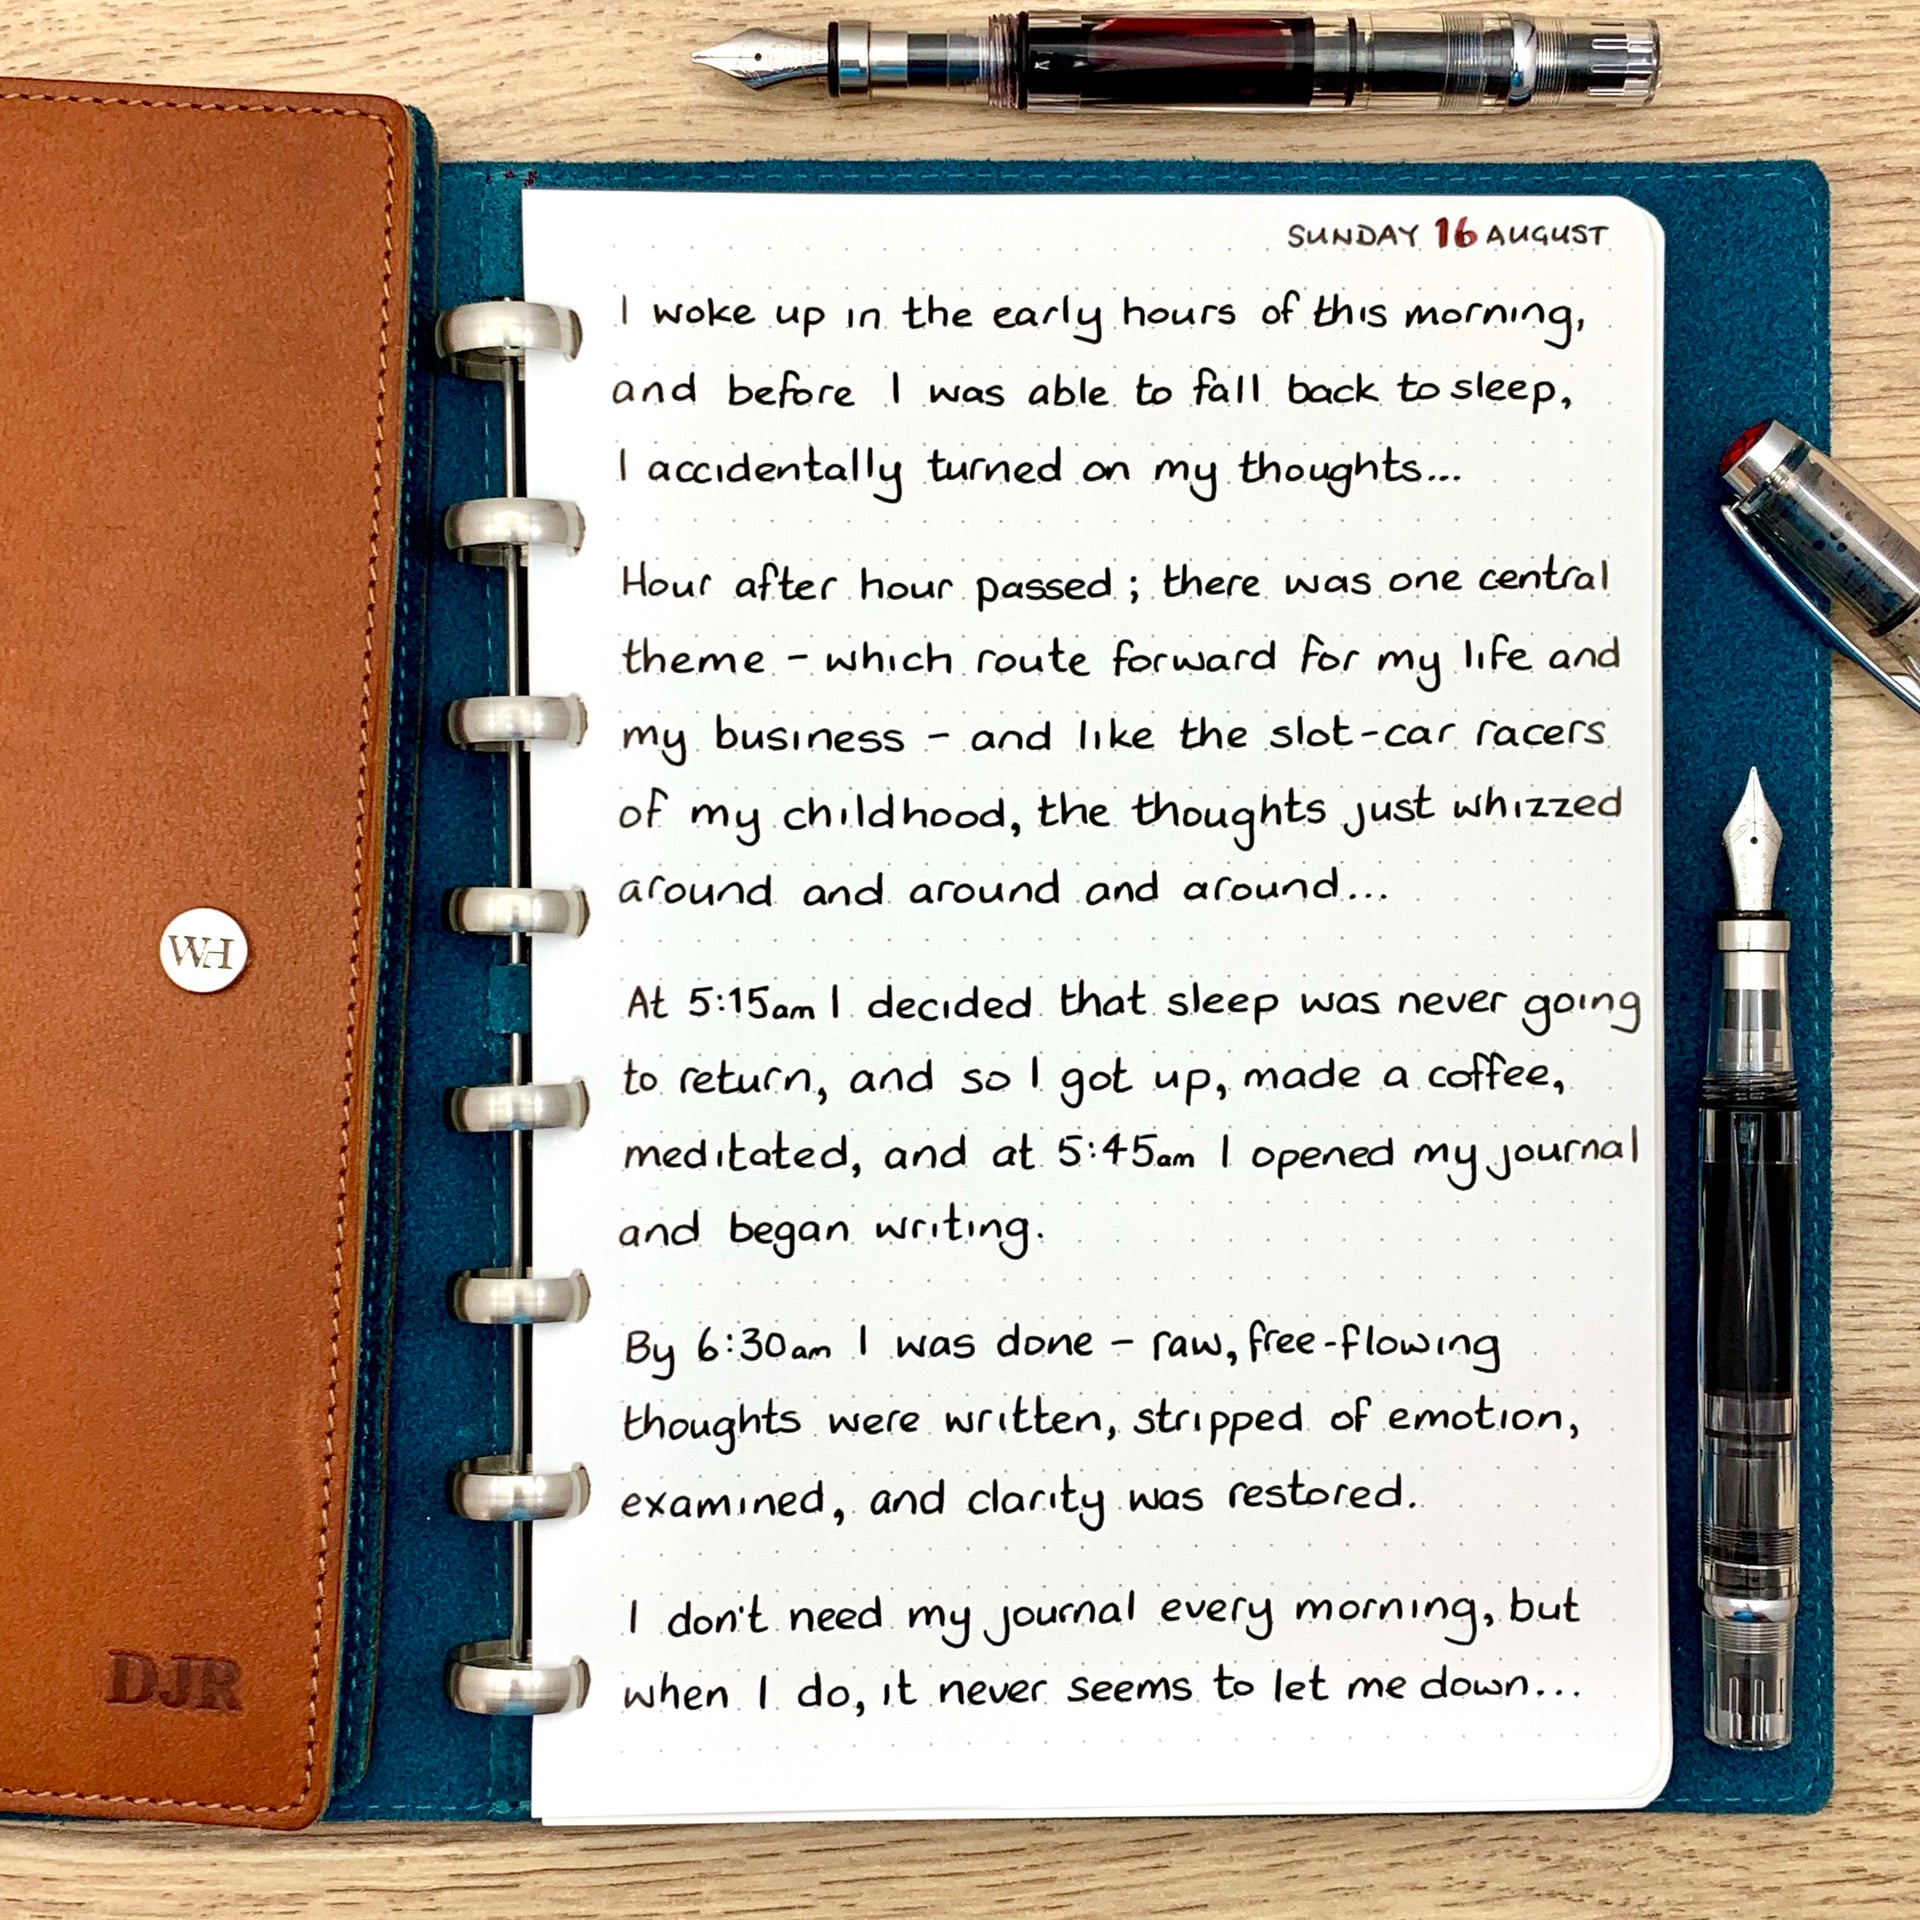 SUNDAY 16 AUGUST
I woke up in the early hours of this morning,
and before I was able to fall back to sleep,
I accidentally turned on my thoughts...
Hour after hour passed; there was one central
theme - which route forward for my life and
my business - and like the slot-car racers
of my childhood, the thoughts just whizzed
around and around and around...
At 5:15am I decided that sleep was never going
to return, and so I got up, made a coffee,
meditated, and at 5:45am I opened my journal
and began writing.
By 6:30am I was done - raw, free-flowing
thoughts were written, stripped of emotion,
examined, and clarity was restored.
I don't need my journal every morning, but
when I do, it never seems to let me down...
WH
DJR